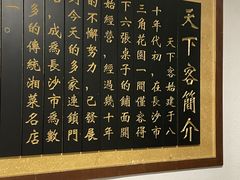 天下客簡介
天下客始建于八
十年代初，在長沙市
三角花園一間僅容得
下六張桌子的鋪面開
始經營，經過幾十年
的不懈努力，已發展
到今天的多家連鎖門
，成爲長沙市爲數
多的傳統湘菜名店
一。